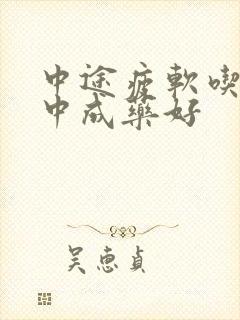 中途疲軟喫
中成藥好
吴惠貞